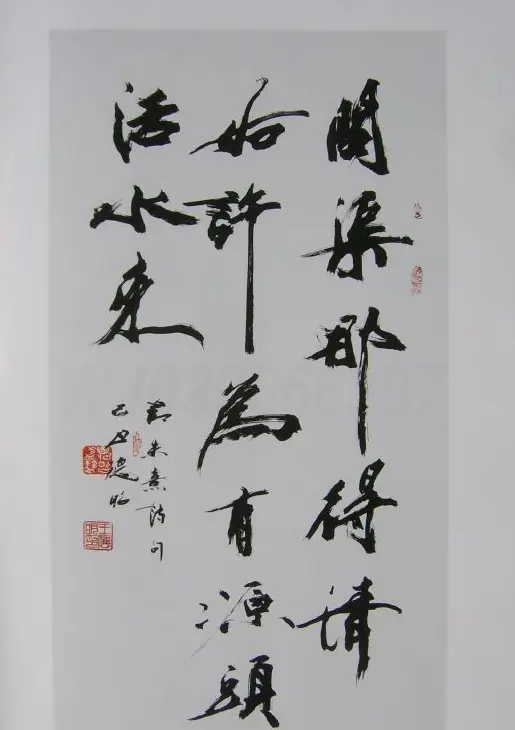 問渠那得清
如許為有源頭
活水來
朱熹詩句
己丑德